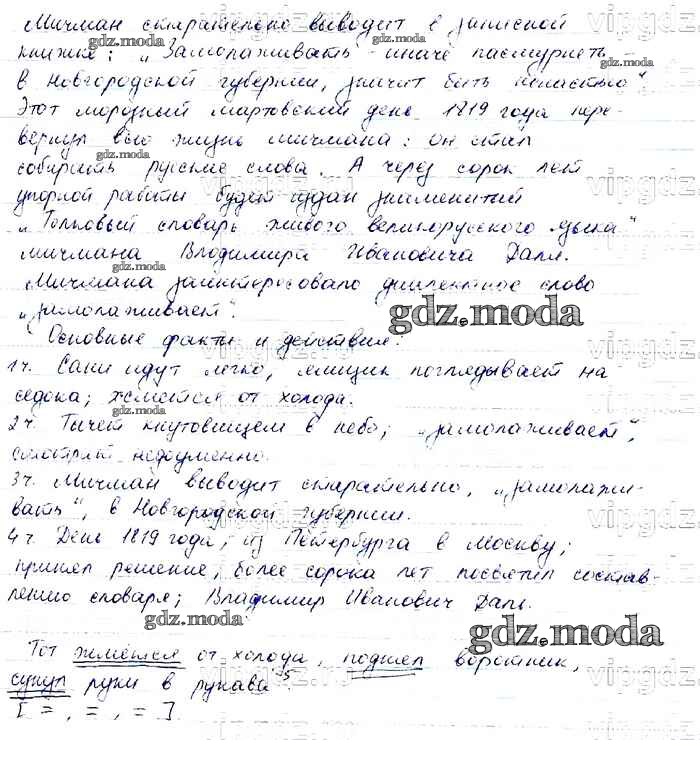 Мичман старательно выводит в записной
книжке: „Замолаживать – иначе пасмурнеть –
в Новгородской губернии, значит быть ненастью"
Этот морозный мартовский день 1819 года пере-
вернул всю жизнь мичмана: он стал
собирать русские слова. А через сорок лет
упорной работы будет издан знаменитый
„Толковый словарь живого великорусского языка"
мичмана Владимира Ивановича Даля.
Мичмана заинтересовало диалектное слово
„замолаживает".
Основные факты и действия:
1ч. Сани идут легко, ямщик поглядывает на
седока; жмётся от холода.
2ч. Тычет кнутовищем в небо; „замолаживает",
смотрит недоуменно.
3ч. Мичман выводит старательно, „замолажи-
вать", в Новгородской губернии.
4ч. День 1819 года; из Петербурга в Москву;
принял решение, более сорока лет посвятил состав-
лению словаря; Владимир Иванович Даль.
Тот жмётся от холода, поднял воротник,
сунул руки в рукава
[ = , = , = ]
gdz.moda
vipgdz.ru